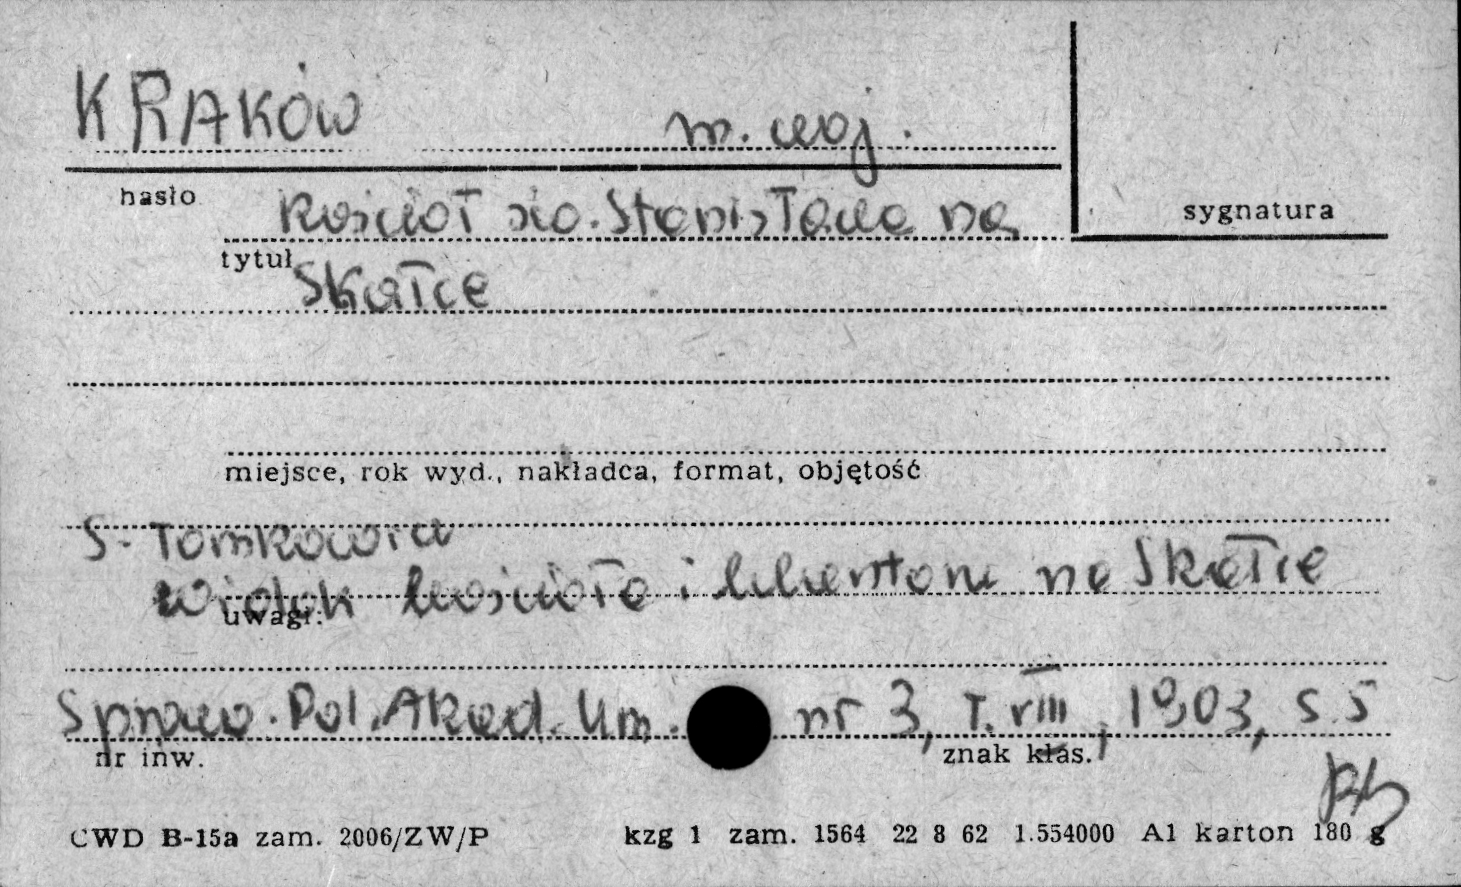 KRAKÓW m. woj.
hasło
sygnatura
Kościół św. Stanisława na
tytuł
Skałce
miejsce, rok wyd., nakładca, format, objętość
S. Tomkowicz
Widok kościoła i klasztoru na Skałce
uwagi:
Spraw. Pol. Akad. Um. nr 3, T. VIII, 1903, s. 5
nr inw. znak klas.
CWD B-15a zam. 2006/ZW/P kzg 1 zam. 1564 22 8 62 1.554000 A1 karton 180 g